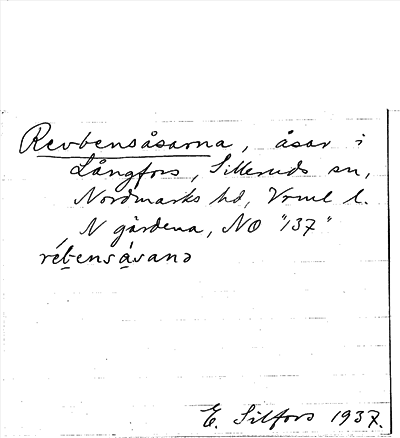 Revbensåsarna, åsar i
Långfors, Silleruds sn,
Nordmarks hd, Vrml l.
N gårdena, NO "137"
rébensåsanə
E. Silfors 1937.